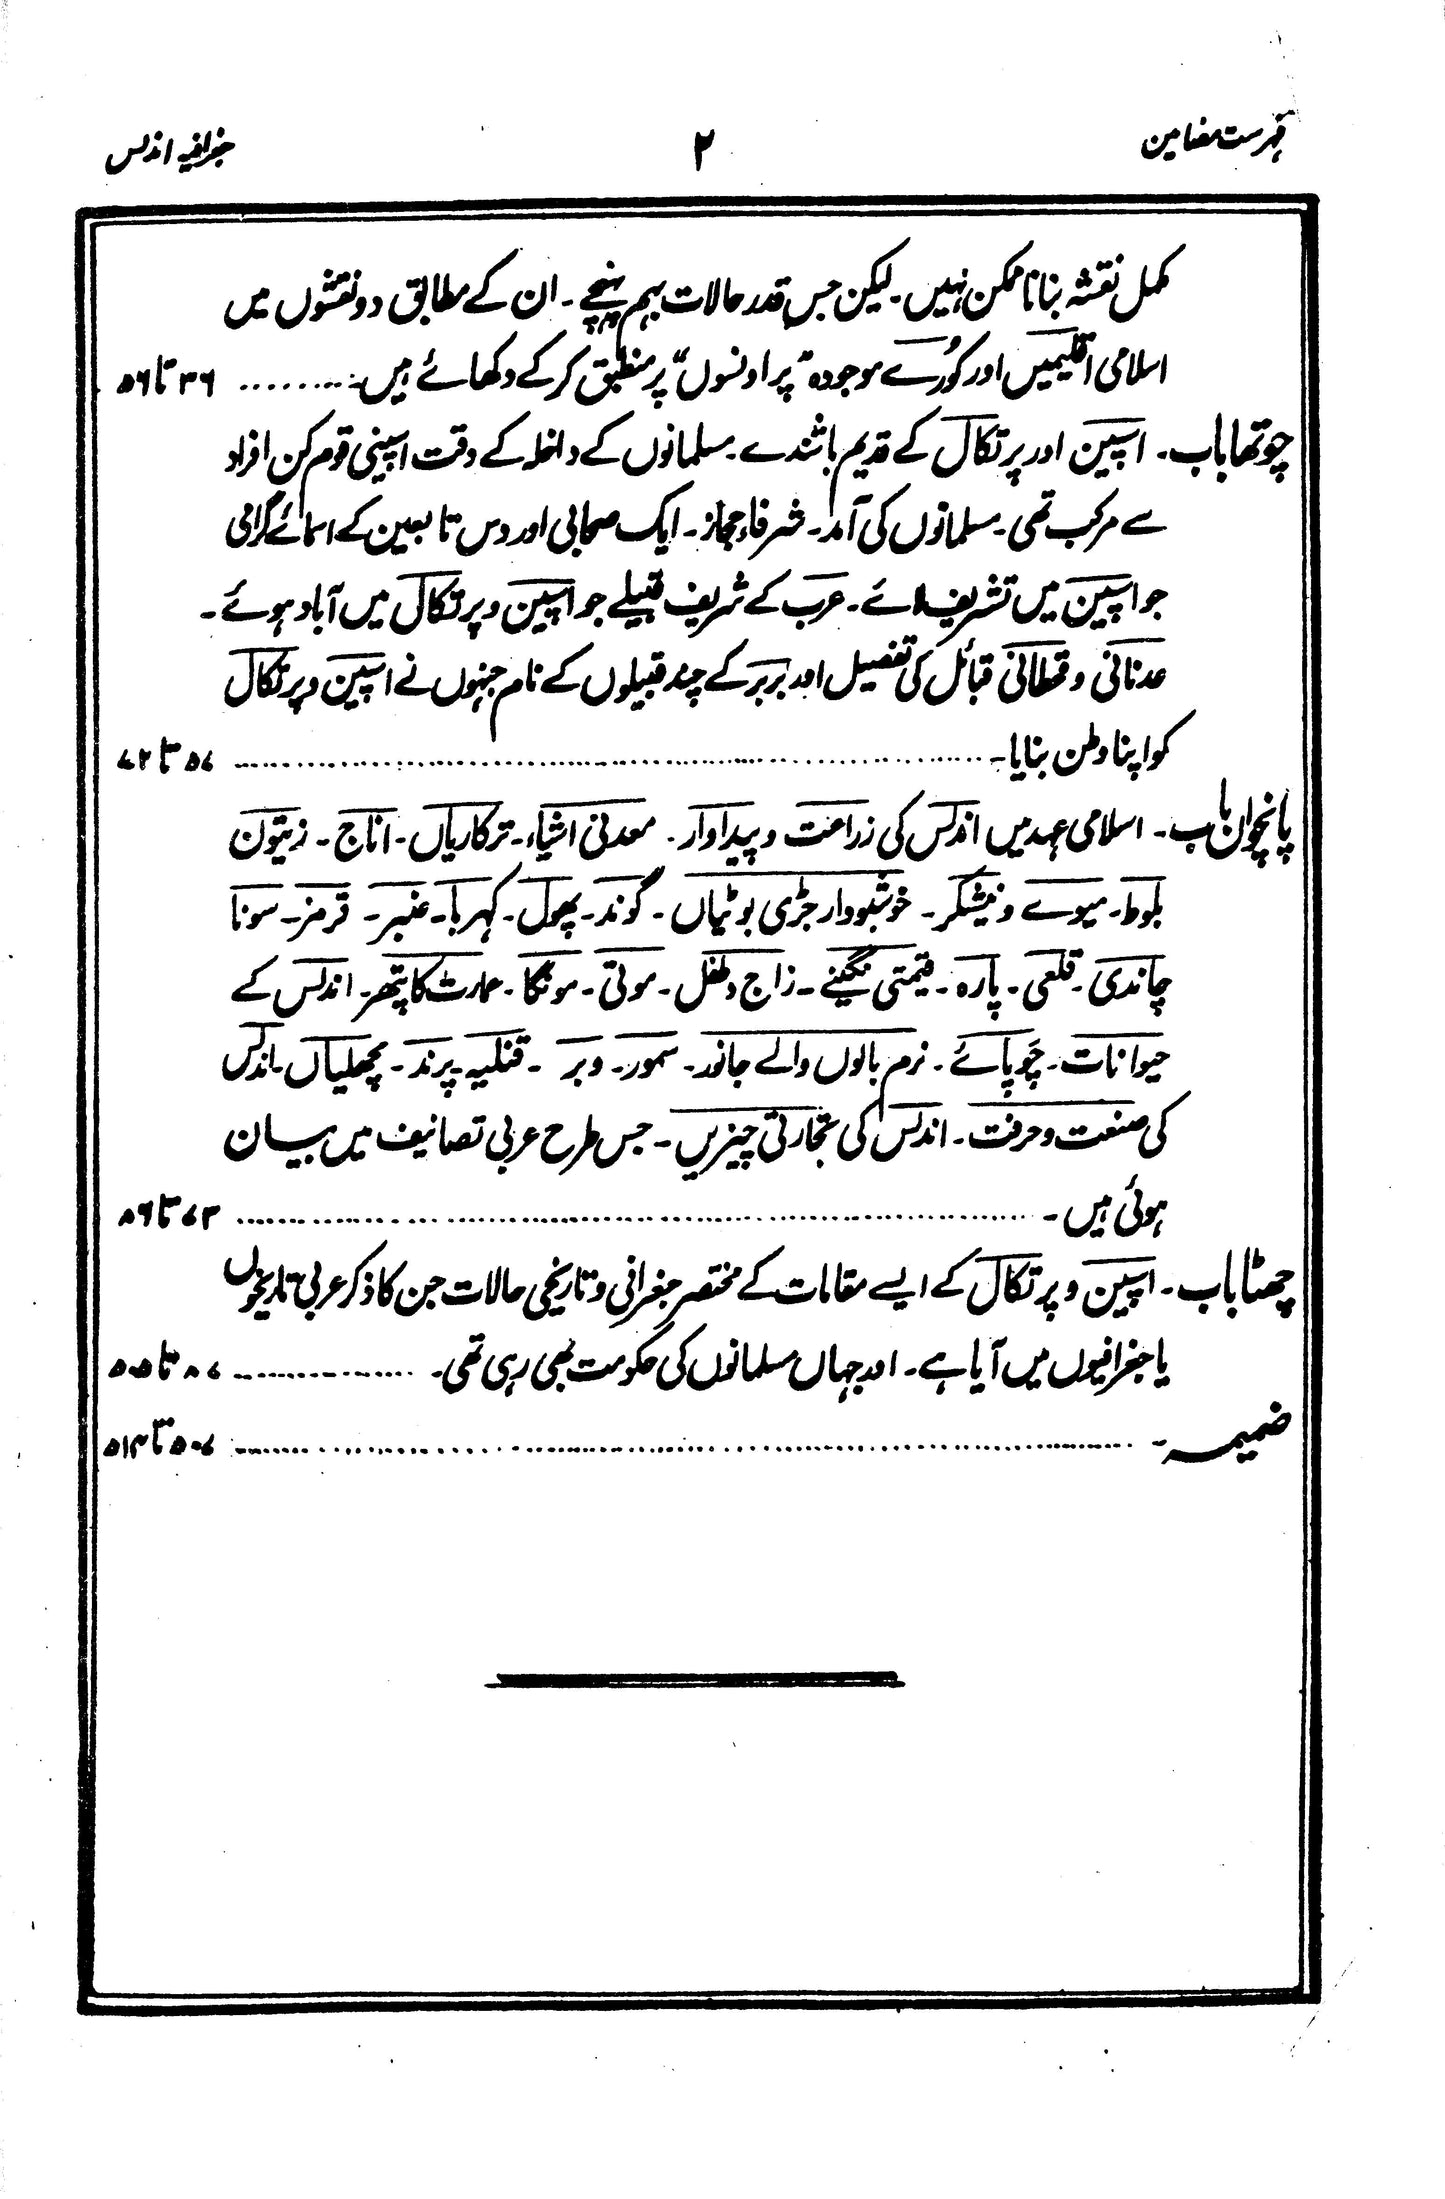 فہرست مضامین ۲ جغرافیہ اندلس
مکمل نقشہ بنانا ممکن نہیں۔ لیکن جس قدر حالات بہم پہنچے۔ ان کے مطابق دو نقشوں میں
اسلامی اقلیمیں اور کُورے موجودہ "پراونسوں" پر منطبق کر کے دکھائے ہیں۔ ......... ۳۶ تا ۵۶
چوتھا باب۔ اسپین اور پرتکال کے قدیم باشندے۔ مسلمانوں کے داخلہ کے وقت اسپینی قوم کن افراد
سے مرکب تھی۔ مسلمانوں کی آمد۔ شرفاء حجاز۔ ایک صحابی اور دس تابعین کے اسمائے گرامی
جو اسپین میں تشریف لائے۔ عرب کے شریف قبیلے جو اسپین و پرتکال میں آباد ہوئے۔
عدنانی و قحطانی قبائل کی تفصیل اور بربر کے چند قبیلوں کے نام جنہوں نے اسپین و پرتکال
کو اپنا وطن بنایا۔ ......... ۵۷ تا ۷۲
پانچواں باب۔ اسلامی عہد میں اندلس کی زراعت و پیداوار۔ معدنی اشیاء۔ ترکاریاں۔ اناج۔ زیتون
بلوط۔ میوے و نیشکر۔ خوشبودار جڑی بوٹیاں۔ گوند۔ پھول۔ کہربا۔ عنبر۔ قرمز۔ سونا
چاندی۔ قلعی۔ پارہ۔ قیمتی نگینے۔ زاج و طفل۔ موتی۔ مونگا۔ عمارت کا پتھر۔ اندلس کے
حیوانات۔ چوپائے۔ نرم بالوں والے جانور۔ سمور۔ وبر۔ قنلیہ۔ پرند۔ مچھلیاں۔ اندلس
کی صنعت و حرفت۔ اندلس کی تجارتی چیزیں۔ جس طرح عربی تصانیف میں بیان
ہوئی ہیں۔ ......... ۷۳ تا ۸۶
چھٹا باب۔ اسپین و پرتکال کے ایسے مقامات کے مختصر جغرافی و تاریخی حالات جن کا ذکر عربی تاریخوں
یا جغرافیوں میں آیا ہے۔ اور جہاں مسلمانوں کی حکومت بھی رہی تھی۔ ......... ۸۷ تا ۵۰۵
ضمیمہ۔ ......... ۵۰۷ تا ۵۱۳